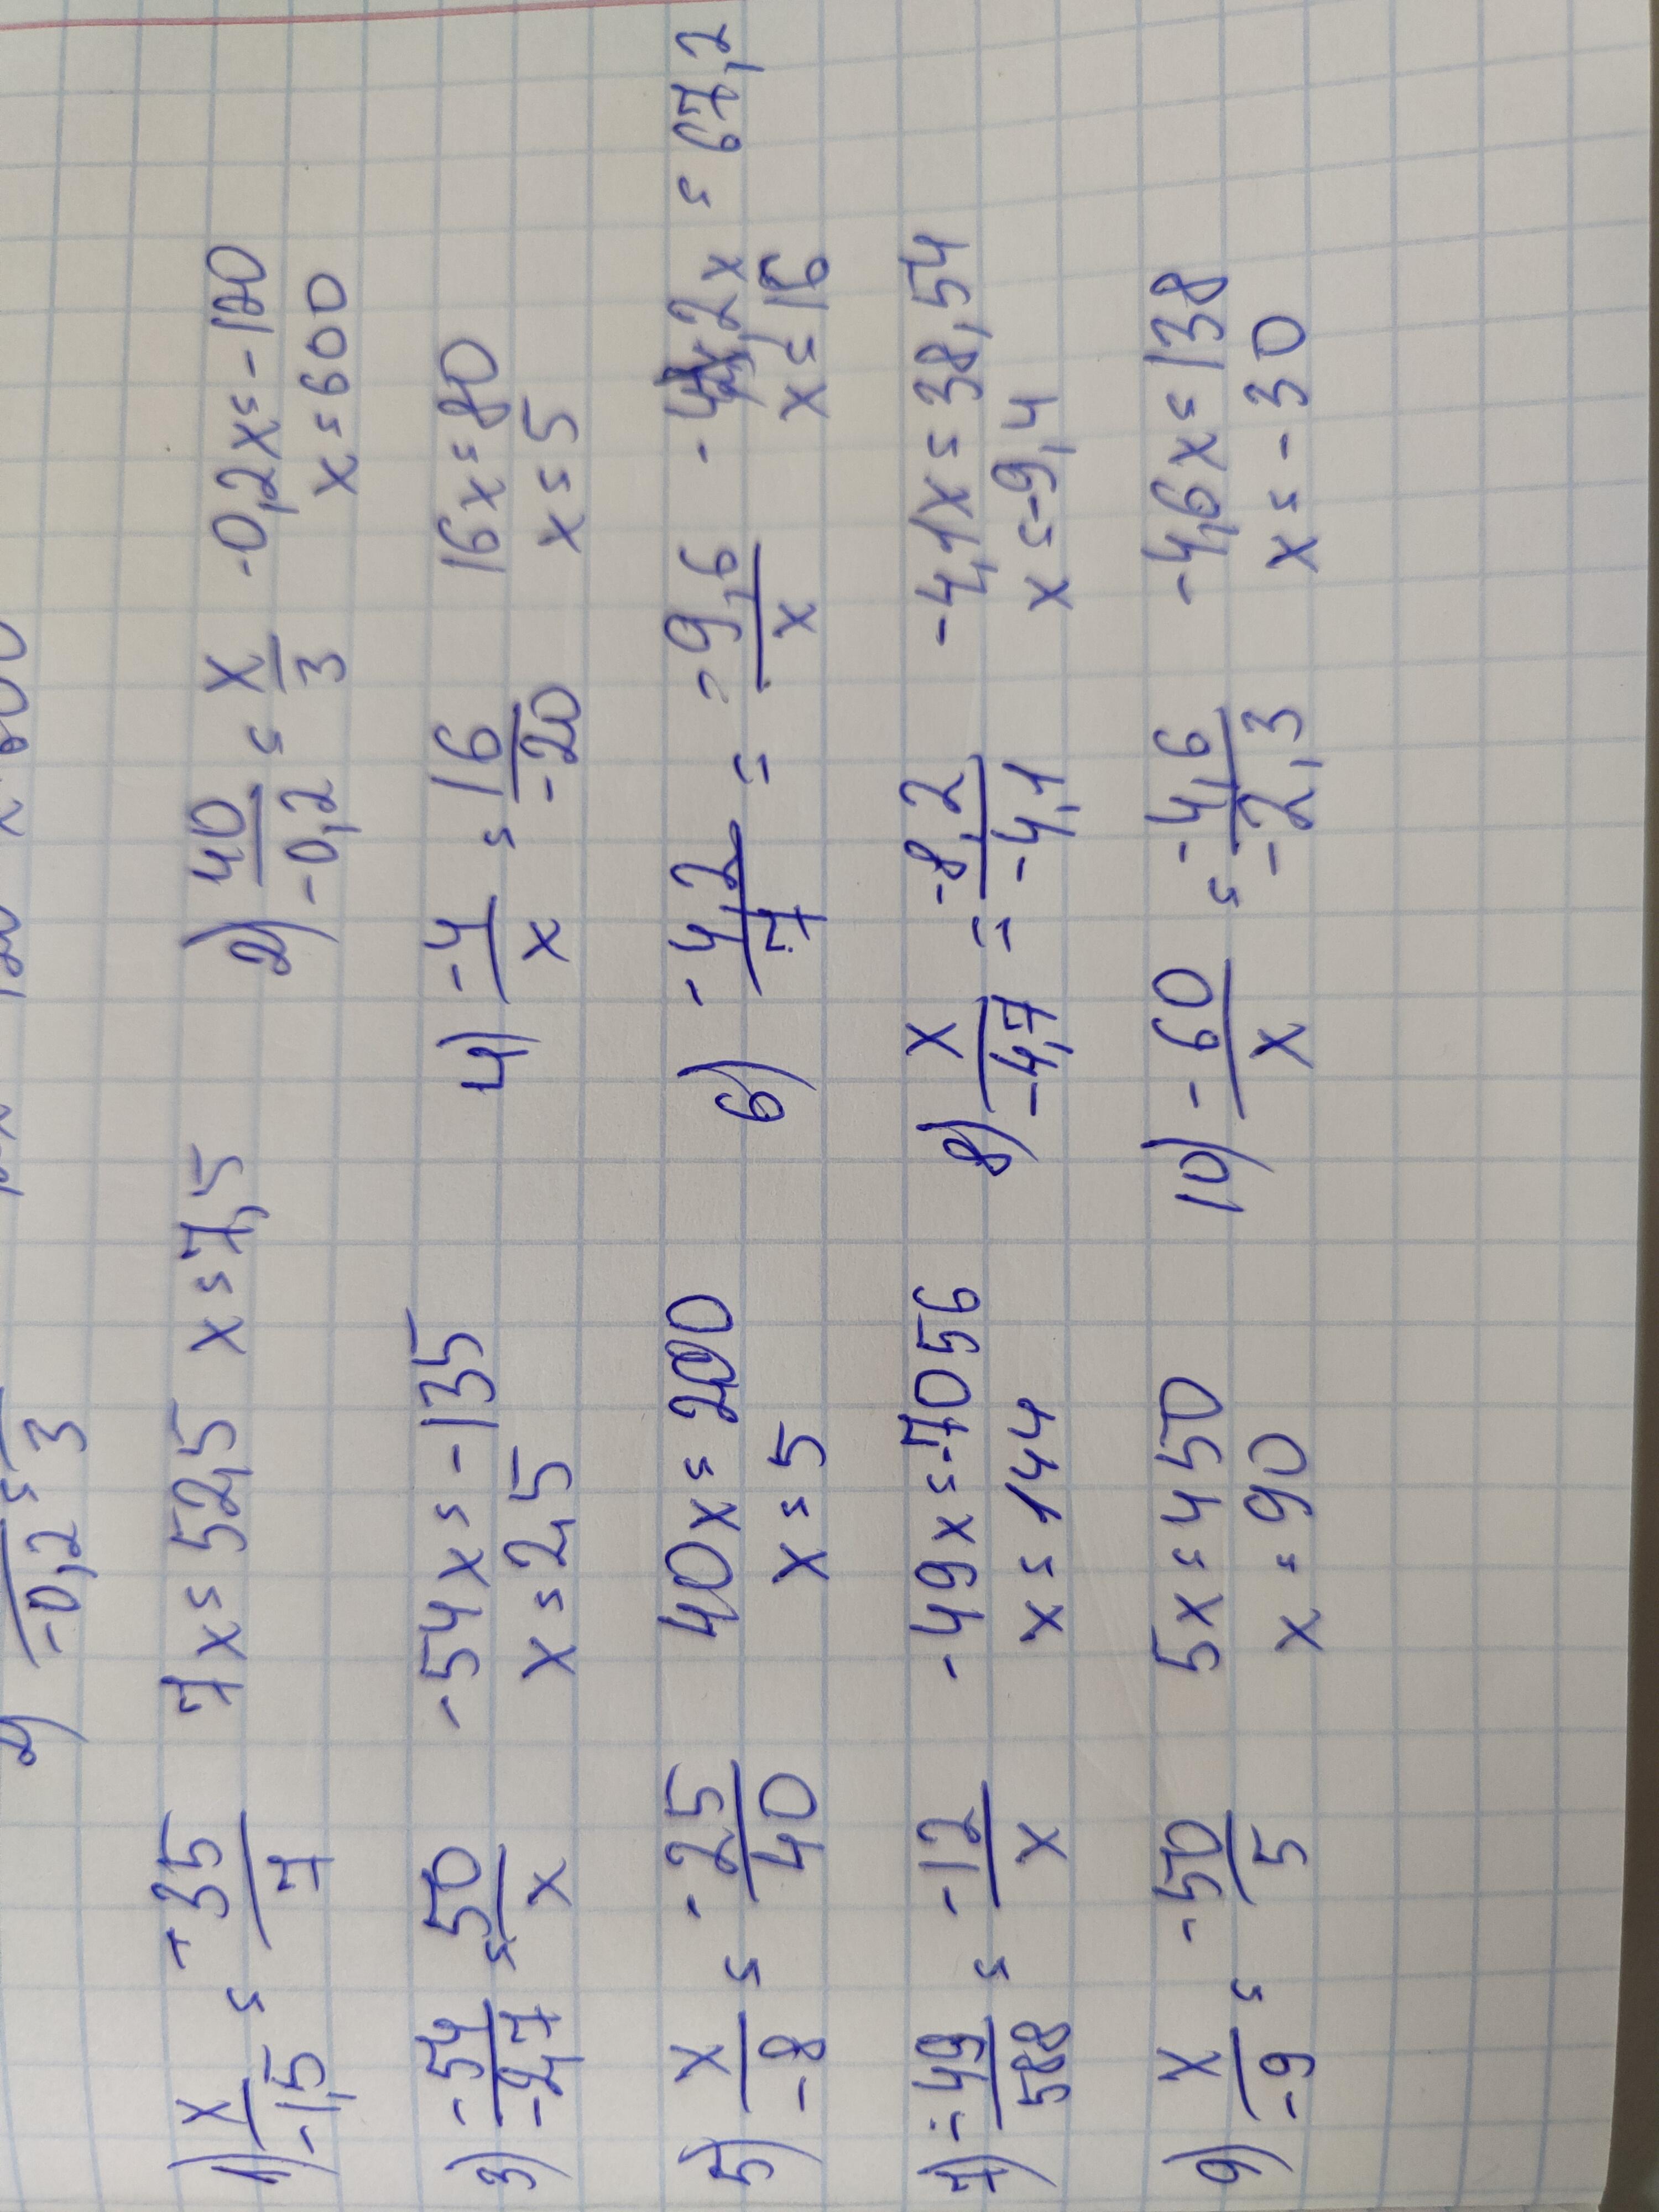 2) —/-0,2 = —/3
1) x/-1,5 = -35/7 7x = 52,5 x = 7,5
2) 40/-0,2 = x/3 -0,2x = -120
x = 600
3) -54/-2,7 = 50/x -54x = -135
x = 2,5
4) -4/x = 16/-20 16x = 80
x = 5
5) x/-8 = -25/40 40x = 200
x = 5
6) -4,2/7 = -9,6/x -4,2x = 67,2
x = 16
7) -49/588 = -12/x -49x = -7056
x = 144
8) x/-4,7 = -8,2/-4,1 -4,1x = 38,54
x = -9,4
9) x/-9 = -50/5 5x = 450
x = 90
10) -60/x = -4,6/-2,3 -4,6x = 138
x = -30